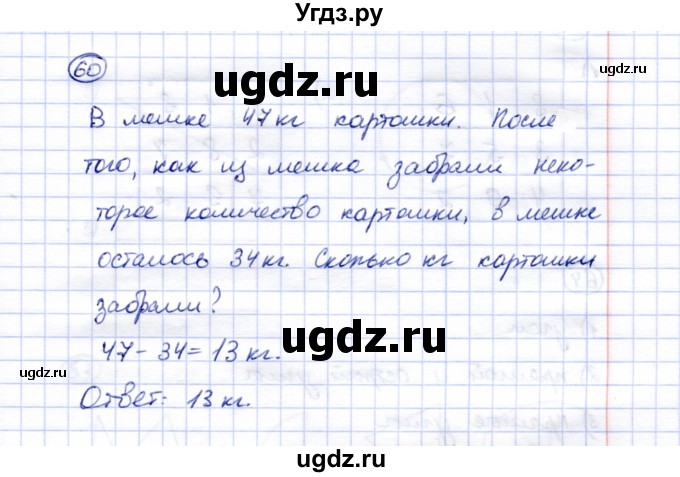 Угдз.ру
60
ugdz.ru
ugdz.ru
В мешке 47 кг картошки. После
того, как из мешка забрали неко-
ugdz.ru
торое количество картошки, в мешке
осталось 34 кг. Сколько кг картошки
забрали?
ugdz.ru
47 - 34 = 13 кг.
ugdz.ru
ugdz.ru
Ответ: 13 кг.
ugdz.ru